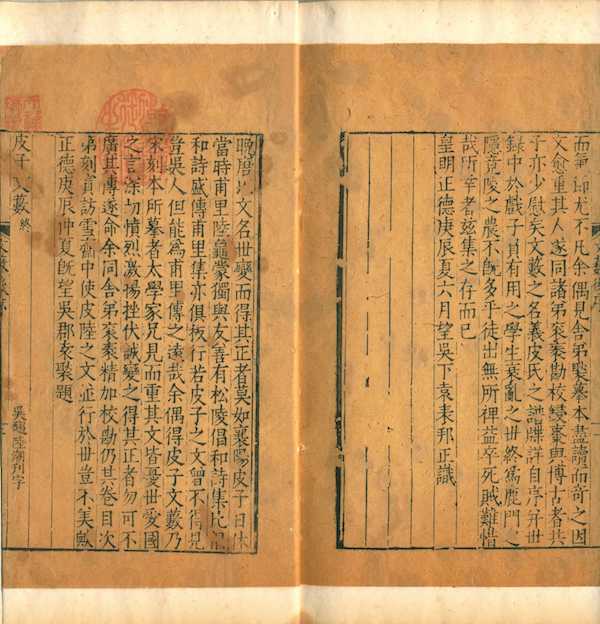 而爭卻尤不凡余偶見舍弟褧摹本盡讀而奇之因
文愈重其人遂同諸弟勘校棗與博古者共
子亦少慰矣文藪之名義皮氏之譜牒詳自序并世
錄中於戲子負有用之學生衰亂之世終焉鹿門之
隱竟陵之農不旣多乎徒出無所裨益卒死賊難惜
哉所幸者茲集之存而已
皇明正德庚辰夏六月望吳下袁表邦正識
晚唐以文名世變而得其正者莫如襄陽皮子日休
當時甫里陸龜蒙獨與友善有松陵倡和詩集比
和詩盛傳甫里集亦俱板行若皮子之文曾不得見
豈吳人但能爲甫里傳之遠哉余偶得皮子文藪乃
宋刻本所摹者太學家兄見而重其文皆憂世愛國
之言深切憤烈激揚挫伏誠變之得其正者勿可不
廣其傳遂命余同舍弟精加校勘仍其卷目次
第刻訪雪中使皮陸之文並行於世豈不美歟
正德庚辰仲夏旣望吳郡袁褧題
吳趨陸潮刊字
皮子文藪終